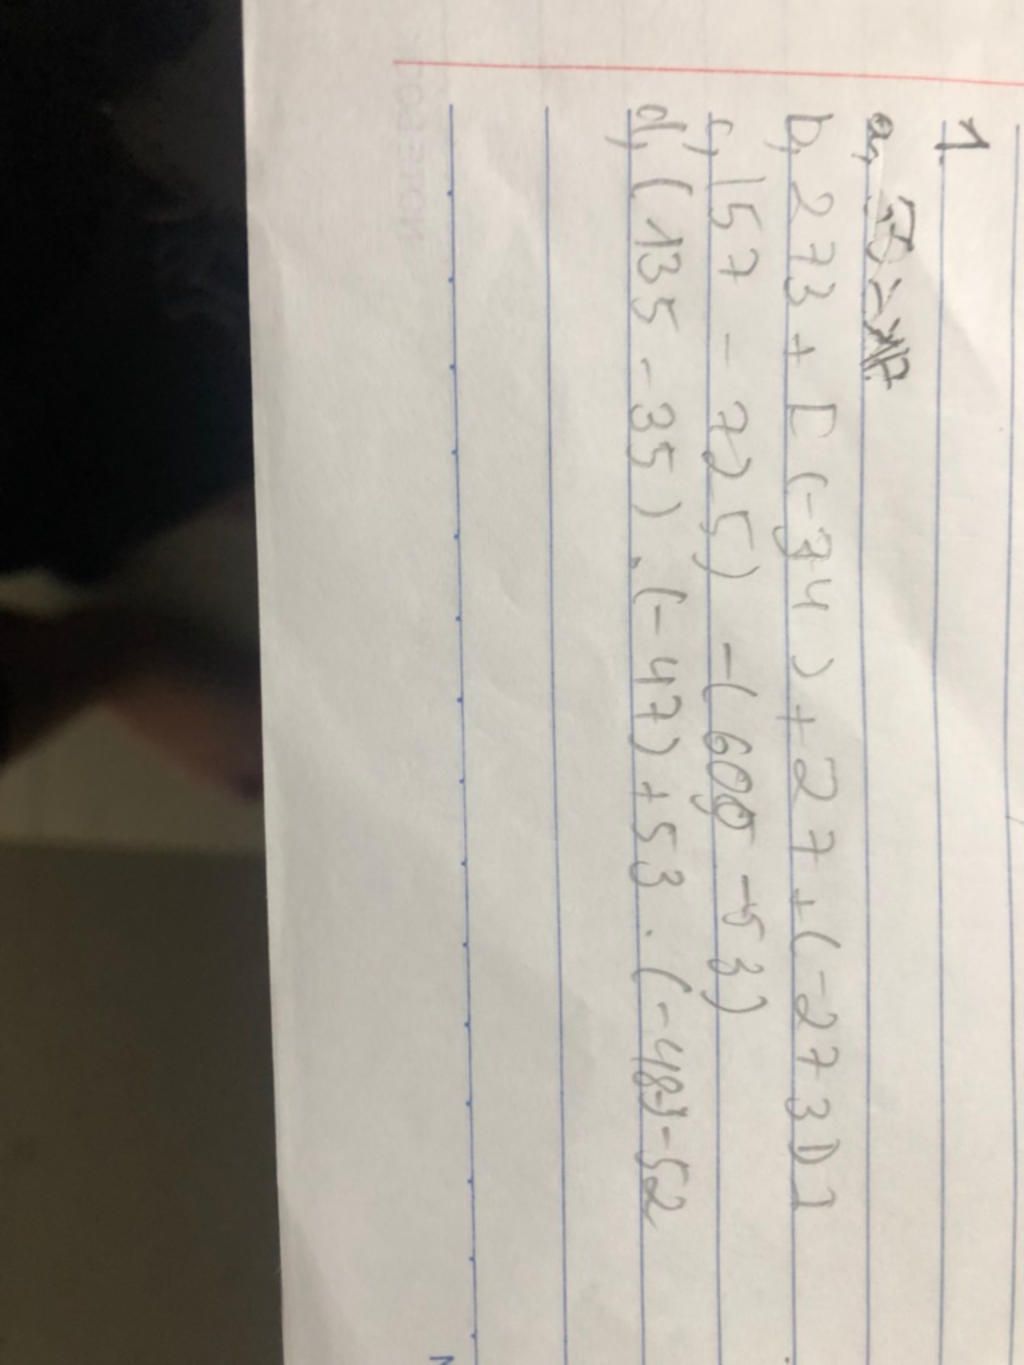 1.
a,
b, 273 + [(-34) + 27 + (-273)]
c, 157 - 725) - (600 - 53)
d, (135 - 35) . (-47) + 53 . (-48) - 52